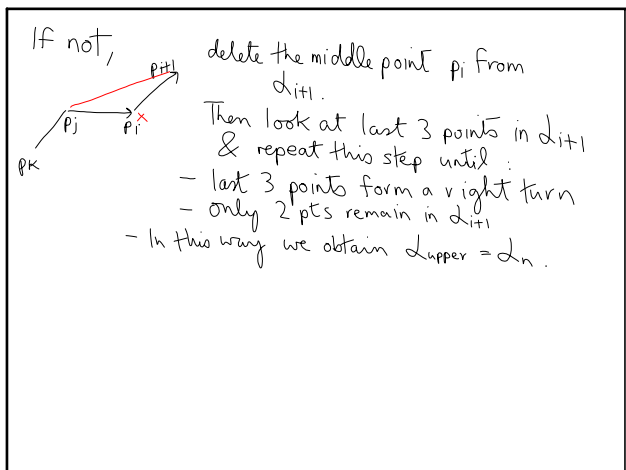 If not,
delete the middle point pi from
Li+1.
pi+1
pj
pi
pk
Then look at last 3 points in Li+1
& repeat this step until :
- last 3 points form a right turn
- only 2 pts remain in Li+1
- In this way we obtain Lupper = Ln.